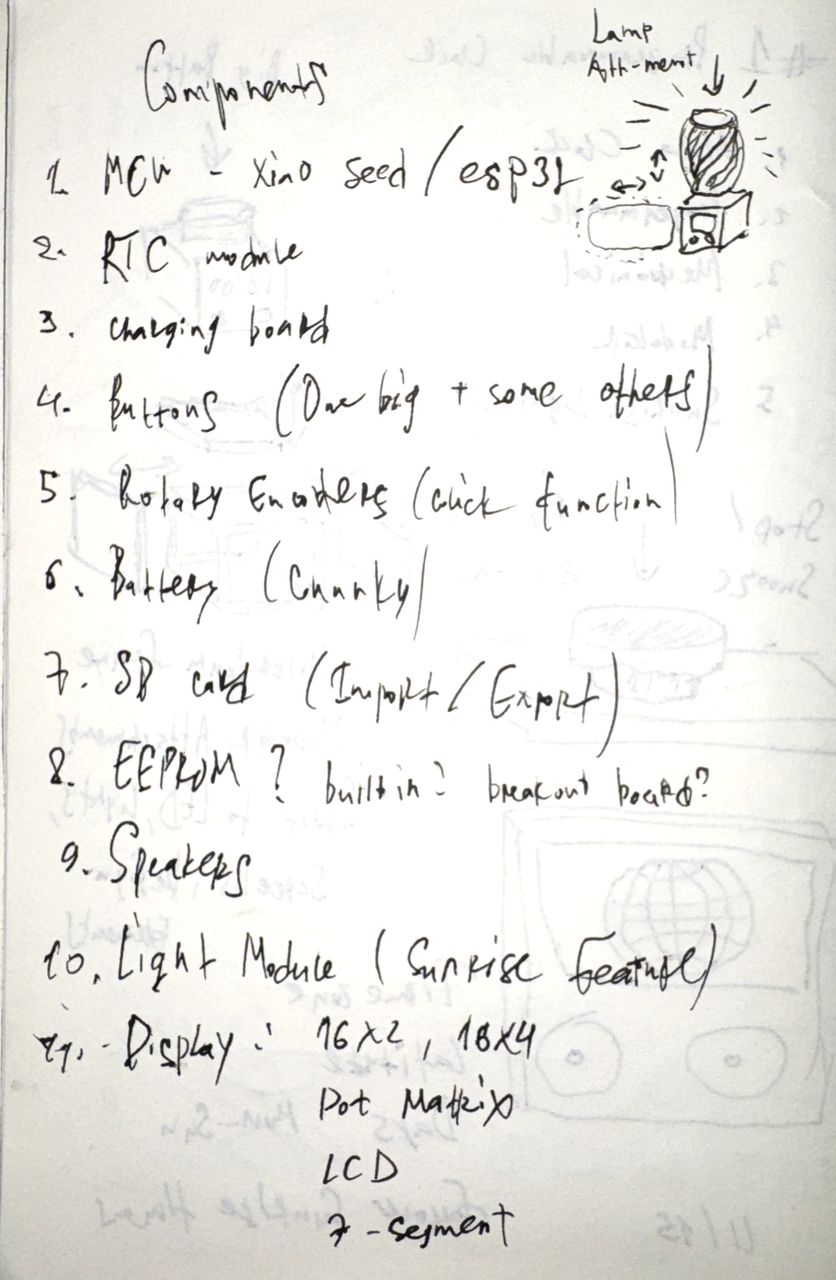 Components
Lamp
Att-ment
1. MCU - Xiao seed / esp32
2. RTC module
3. charging board
4. Buttons (One big + some others)
5. Rotary Encoders (click function)
6. Battery (Chunky)
7. SD card (Import / Export)
8. EEPROM ? built in? breakout board?
9. Speakers
10. Light Module (Sunrise Feature)
11. - Display : 16x2, 18x4
Dot Matrix
LCD
7-segment